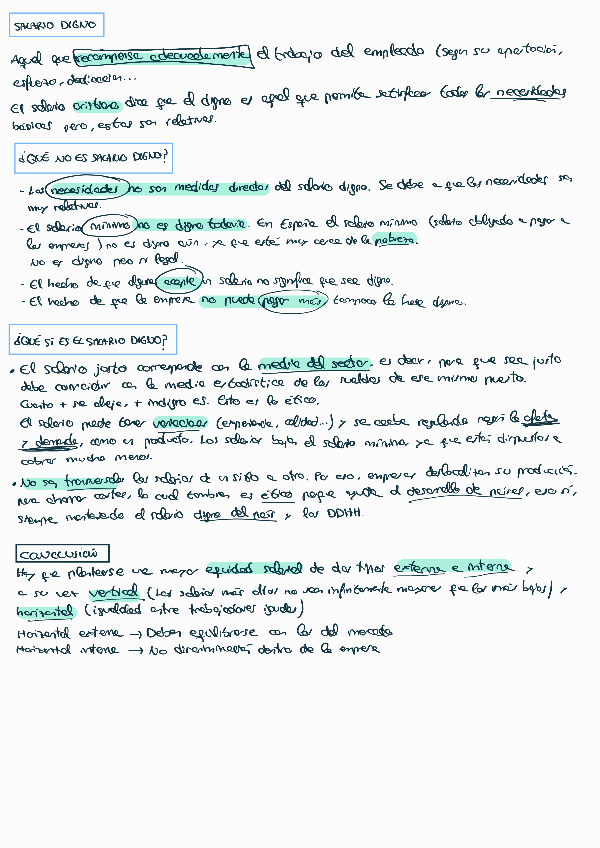 SALARIO DIGNO
Aquel que recompensa adecuadamente el trabajo del empleado (según su aportación,
esfuerzo, dedicación...
El salario cristiano dice que el digno es aquel que permite satisfacer todas las necesidades
básicas pero, estas son relativas.
¿QUÉ NO ES SALARIO DIGNO?
- Las necesidades no son medidas directas del salario digno. Se debe a que las necesidades son
muy relativas.
- El salario mínimo no es digno todavía. En España el salario mínimo (salario obligado a pagar a
las empresas) no es digno aún, ya que está muy cerca de la pobreza.
No es digno pero sí legal.
- El hecho de que alguien acepte un salario no significa que sea digno.
- El hecho de que la empresa no pueda pagar más tampoco la hace digna.
¿QUÉ SÍ ES EL SALARIO DIGNO?
• El salario justo corresponde con la media del sector, es decir, para que sea justo
debe coincidir con la media estadística de los sueldos de ese mismo puesto.
Cuanto + se aleje, + indigno es. Esto es lo ético.
El salario puede tener variaciones (experiencia, calidad...) y se acaba regulando según la oferta
y demanda, como un producto. Los salarios bajan el salario mínimo, ya que están dispuestos a
cobrar mucho menos.
• No son transversales los salarios de un sitio a otro. Por eso, empresas deslocalizan su producción
para ahorrar costes, lo cual también es ético porque ayuda al desarrollo de países, eso sí,
siempre manteniendo el salario digno del país y los DDHH.
CONCLUSIÓN
Hay que plantearse una mayor equidad salarial de dos tipos externa e interna y
a su vez vertical (Los salarios más altos no sean infinitamente mayores que los más bajos) y
horizontal (igualdad entre trabajadores iguales)
Horizontal externa → Deben equilibrarse con los del mercado
Horizontal interna → No discriminación dentro de la empresa